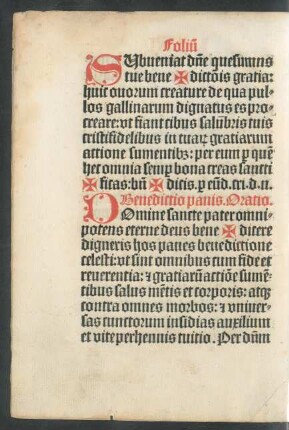 Foliū
Subueniat dn̄e quesumus
tue bene ✠ dictōis gratia:
huic ouorum creature de qua pul-
los gallinarum dignatus es pro-
creare: vt fiant cibus salubris tuis
cristifidelibus in tuaꝝ gratiarum
actione sumentibꝫ: per eum ꝑ quē
hec omnia semꝑ bona creas sancti
✠ ficas: bn̄ ✠ dicis. ꝑ eūd.
Benedictio panis. Oratio.
Domine sancte pater omni-
potens eterne deus bene ✠ dicere
digneris hos panes benedictione
celesti: vt sint omnibus cum fide et
reuerentia: ⁊ gratiarū actiōe sumē-
tibus salus mētis et corporis: atqꝫ
contra omnes morbos: ⁊ vniuer-
sas cunctorum insidias auxilium
et vite perhennis tuitio. Per dn̄m